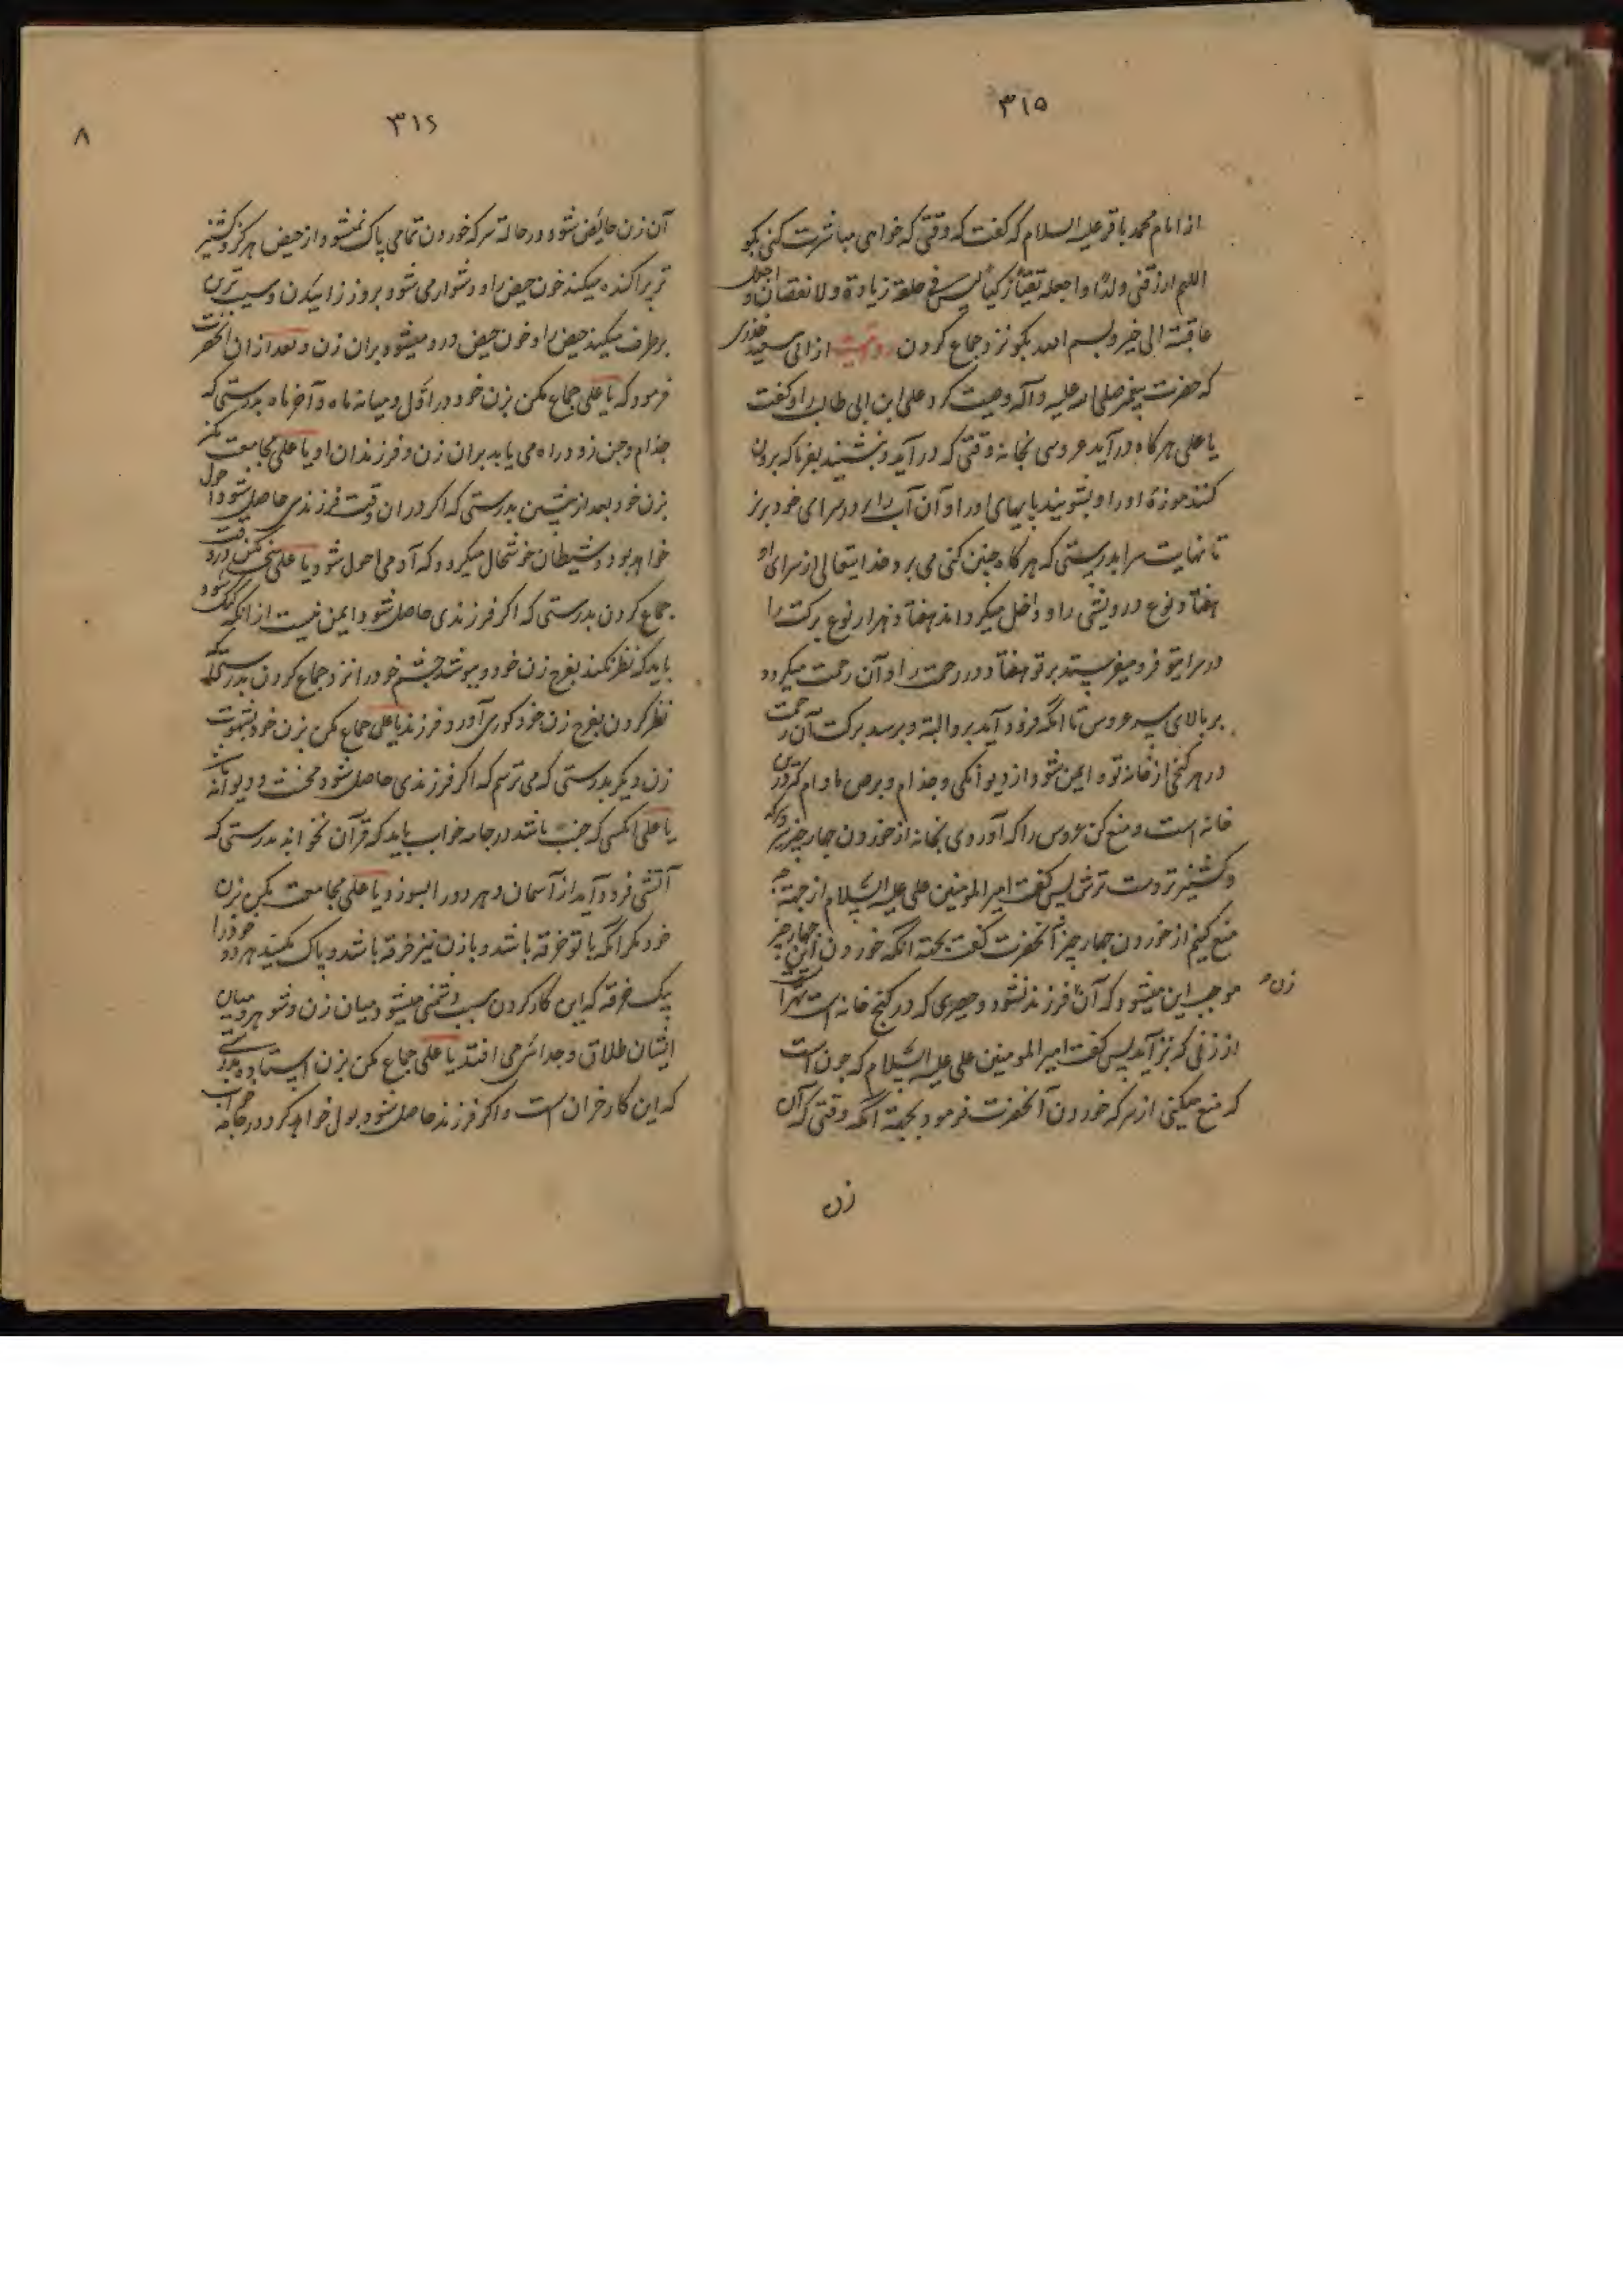 ۳۱۵
از امام محمد باقر علیه السلام که گفت که وقتی که خواهی مباشرت کنی بگو
اللهم ارزقنی ولدًا واجعله تقیًّا زکیًّا لیس فی خلقه زیادة ولا نقصان واجعل
عاقبته الی خیر و بسم الله بگو نزد جماع کردن روایت از ابی سعید خدری
که حضرت پیغمبر صلی الله علیه وآله وصیت کرد علی ابن ابی طالب را و گفت
یا علی هرکاه درآید عروسی بخانه وقتی که درآید و بنشیند بفرما که برون
کنند موزهٔ او را و بشویند پایهای او را و آن آب را در سرای خود بریز
تا نهایت سرا بدرستی که هرکاه چنین کنی می برد خدایتعالی از سرای تو
هفتاد نوع درویشی را و داخل میکرداند هفتاد هزار نوع برکت را
در سرا یتو فرو میفرستد بر تو هفتاد در رحمت را و آن رحمت میکردد
بر بالای سر عروس تا انکه فرود آید برو البته و برسد برکت آن رحمت
در هر کنجی از خانه تو و ایمن شود از دیوانکی و جذام و برص مادام که در این
خانه است و منع کن عروس را که آوردی بخانه از خوردن چهار چیز شیر و سرکه
و کشنیز تر و سیب ترش پس گفت امیر المومنین علی علیه السلام از جهة چه
منع کنم از خوردن چهار چیز آنحضرت گفت بجهته انکه خوردن این چهار چیز
موجب این میشود که آن زن فرزند نشود و حصیری که در کنج خانه است بهتر است
از زنی که نزآید پس گفت امیر المومنین علی علیه السلام که چون است
که منع میکنی از سرکه خوردن آنحضرت فرمود بجهته انکه وقتی که آن
زن
۳۱۶
۸
آن زن حایض شود در حالة سرکه خوردن تمامی پاک نمیشود از حیض هرکز و کشنیز
تر پراکنده میکند خون حیض را و دشوار می شود بروز زائیدن و سیب ترش
برطرف میکند حیض را و خون حیض درد میشود بران زن و بعد ازان آنحضرت
فرمود که یا علی جماع مکن بزن خود در اوّل و میانه ماه و آخر ماه بدرستی که
جذام و جن زود راه می یابد بران زن و فرزندان او یا علی مجامعت مکن
بزن خود بعد از پیشین بدرستی که اکر در ان وقت فرزندی حاصل شود احول
خواهد بود و شیطان خوشحال میکردد که آدمی احول شود یا علی سخن مکن در وقت
جماع کردن بدرستی که اکر فرزندی حاصل شود ایمن نیست از انکه گنگ شود
باید که نظر نکند بفرج زن خود و بپوشد چشم خود را نزد جماع کردن بدرستیکه
نظر کردن بفرج زن خود کوری آورد فرزند یا علی جماع مکن بزن خود بشهوت
زن دیکر بدرستی که می ترسم که اکر فرزندی حاصل شود مخنث و دیوانه باشد
یا علی انکسی که جنب باشد در جامه خواب باید که قرآن نخواند بدرستی که
آتشی فرود آید از آسمان و هر دو را بسوزد یا علی مجامعت مکن بزن
خود مکر انکه با تو خرقه باشد و با زن نیز خرقه باشد و پاک مکنید هر دو خود را
بیک خرقه که این کار کردن سبب دشمنی میشود میان زن و شوهر و میان
ایشان طلاق و جدائی می افتد یا علی جماع مکن بزن ایستاده بدرستی
که این کار خران است و اکر فرزند حاصل شود بول خواهد کرد در جامه خواب